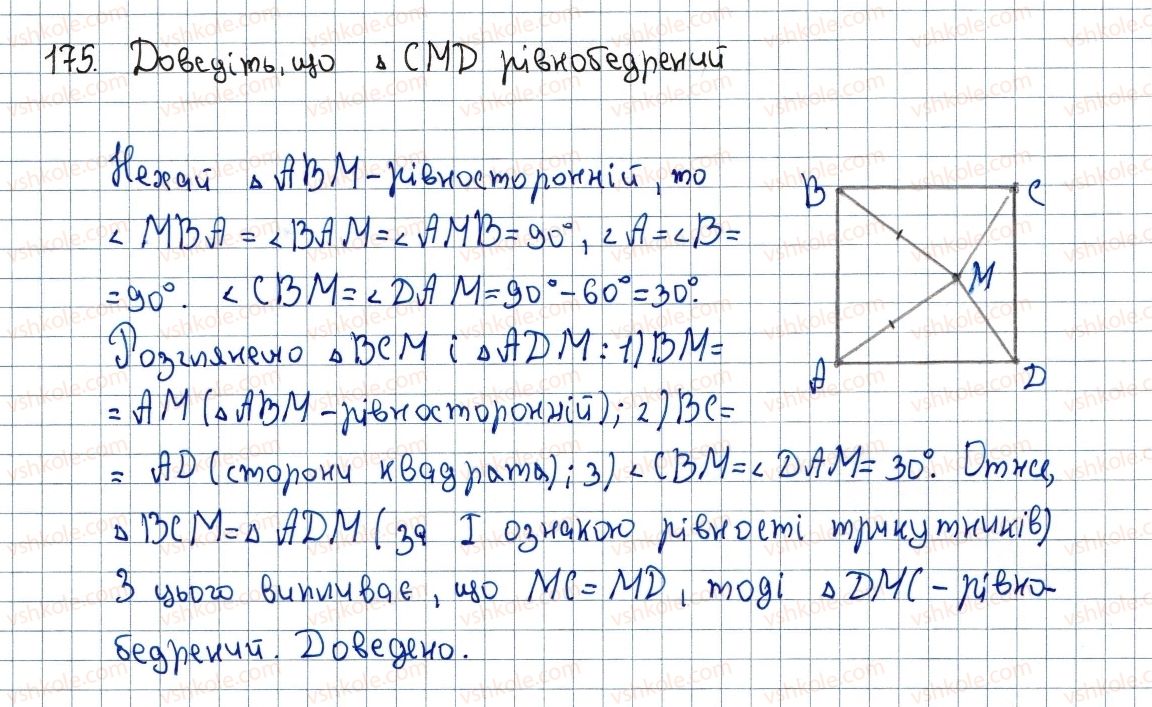 175. Доведіть, що △ CMD рівнобедрений
Нехай △ ABM - рівносторонній, то
∠ MBA = ∠BAM = ∠AMB = 90°, ∠A = ∠B =
= 90°. ∠CBM = ∠DAM = 90° - 60° = 30°.
Розглянемо △BCM і △ADM: 1) BM =
= AM (△ABM - рівносторонній); 2) BC =
= AD (сторони квадрата); 3) ∠CBM = ∠DAM = 30°. Отже,
△BCM = △ADM (за I ознакою рівності трикутників)
З цього випливає, що MC = MD, тоді △DMC - рівно-
бедрений. Доведено.
B
C
M
A
D
vshkole.com